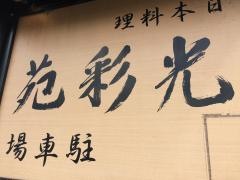 日本料理
光彩苑
駐車場